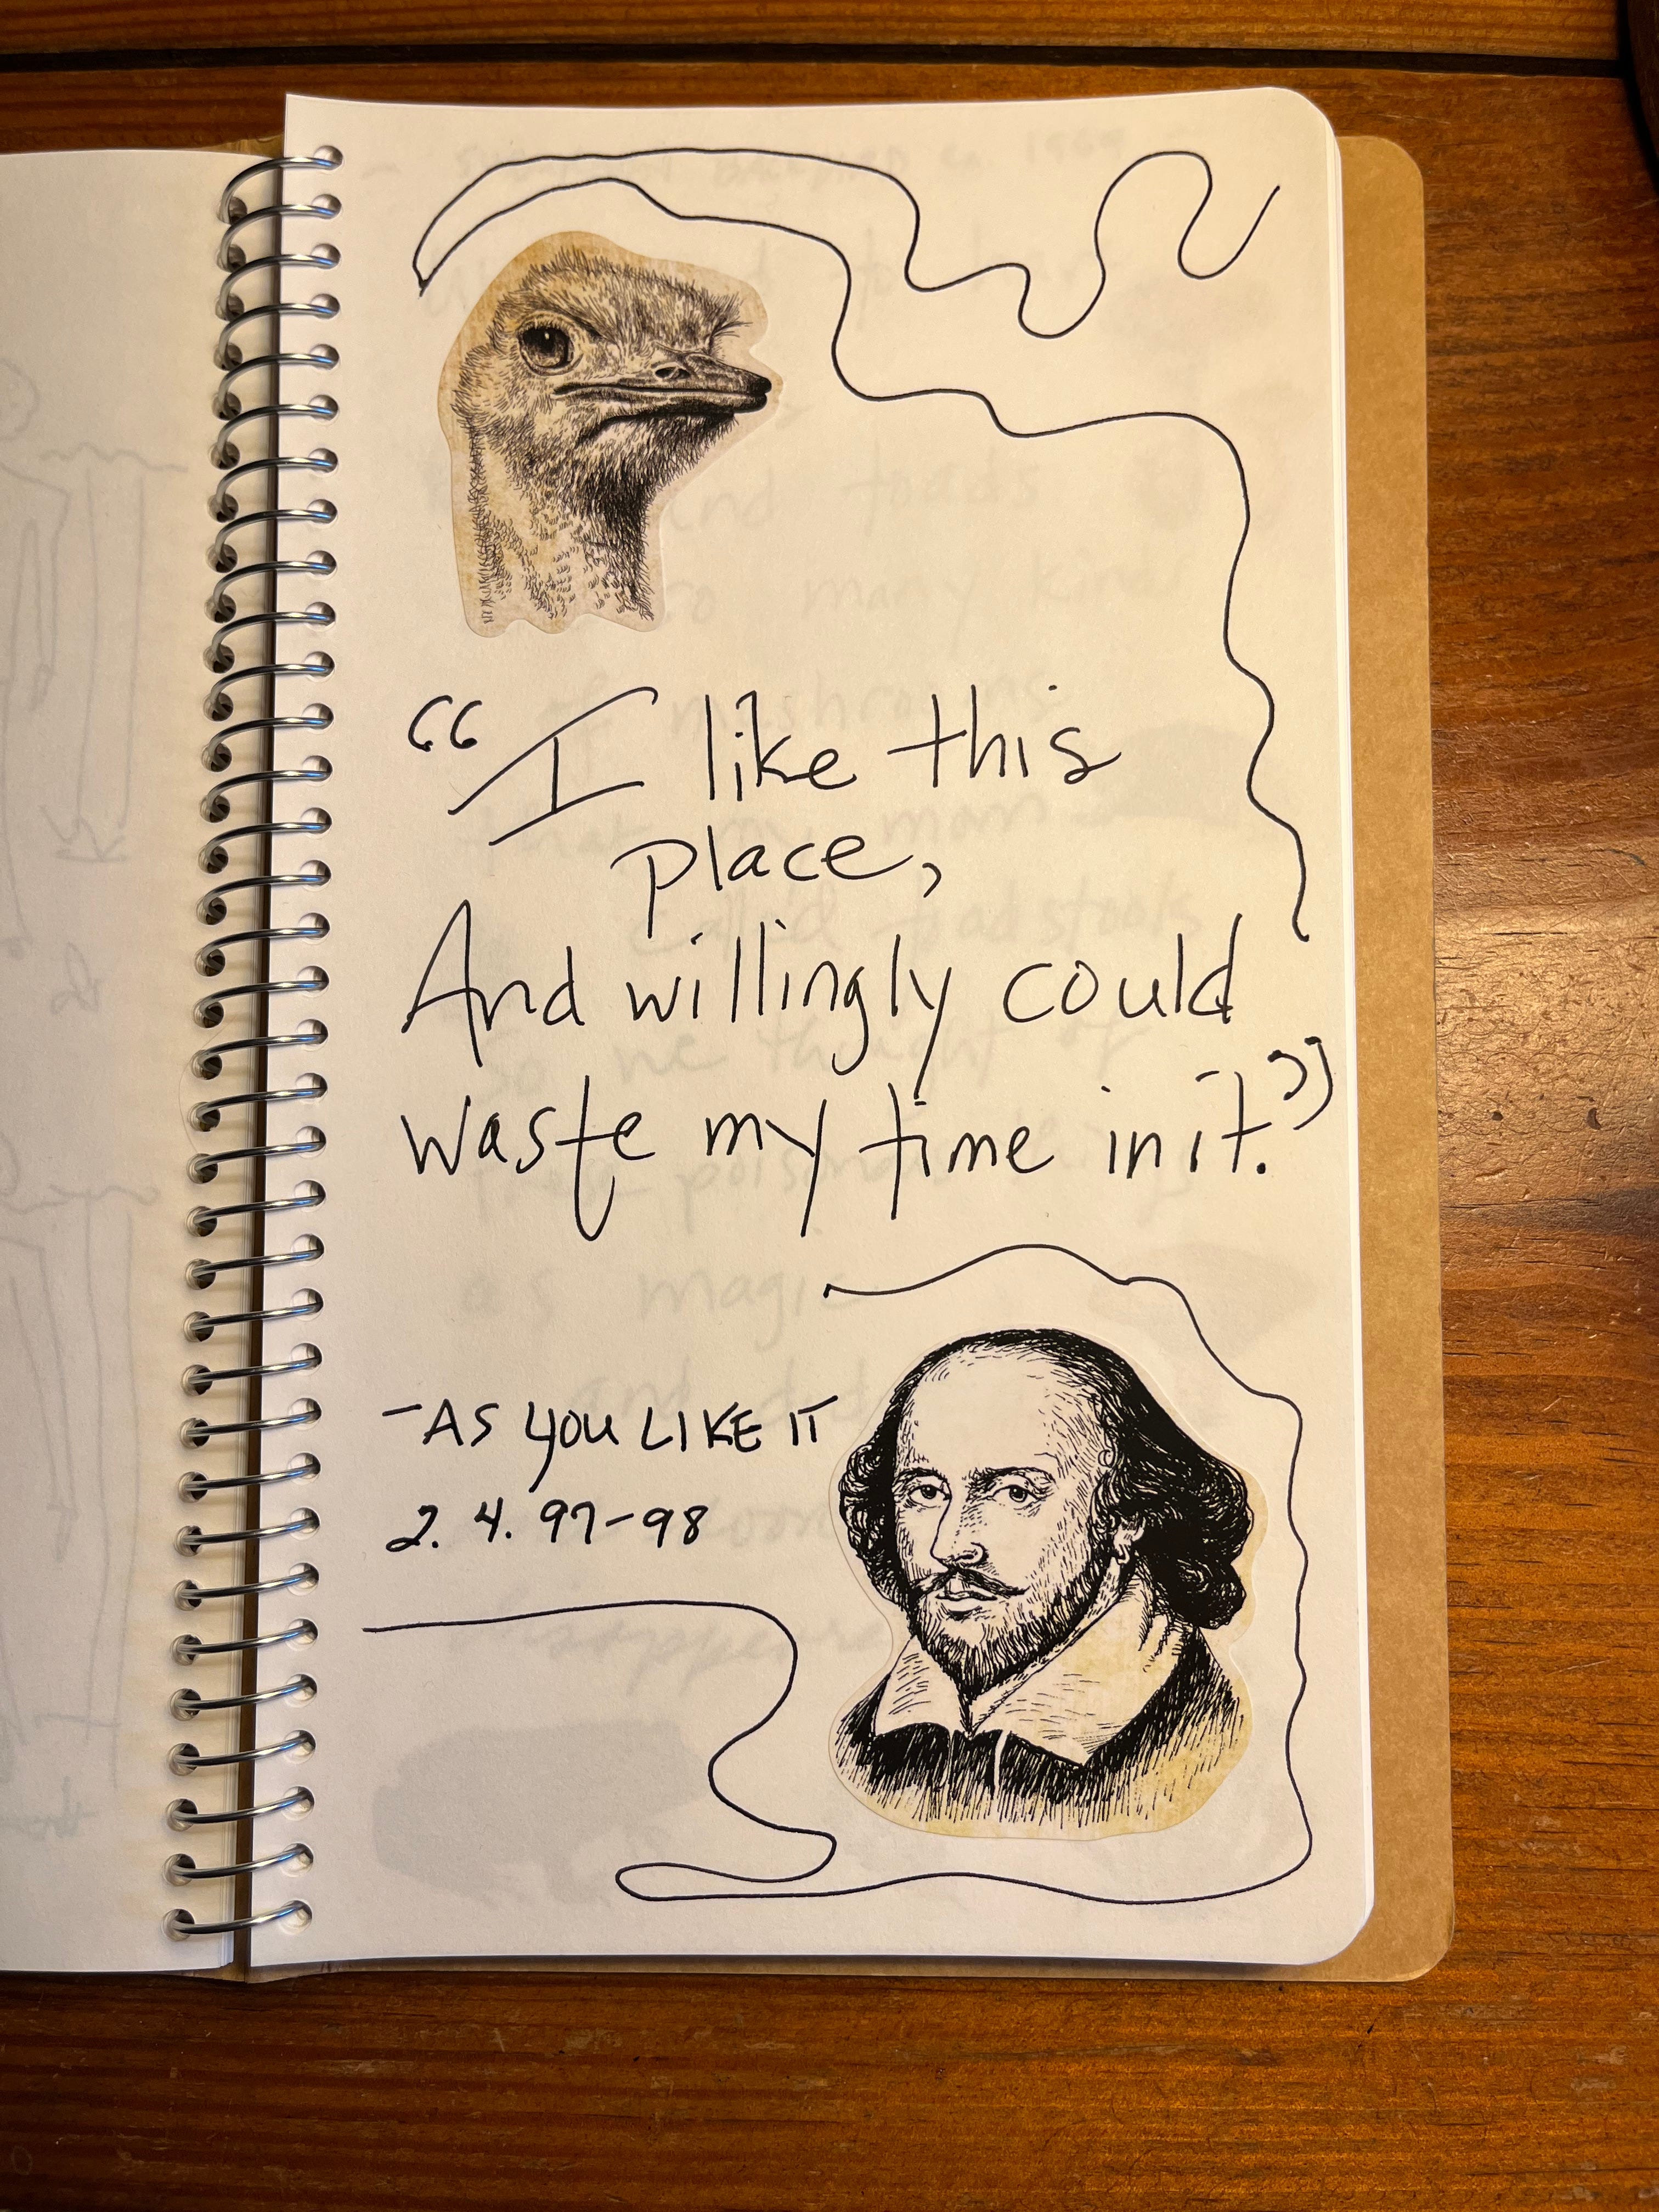 “I like this
place,
And willingly could
waste my time in it.”
- AS YOU LIKE IT
2. 4. 97-98